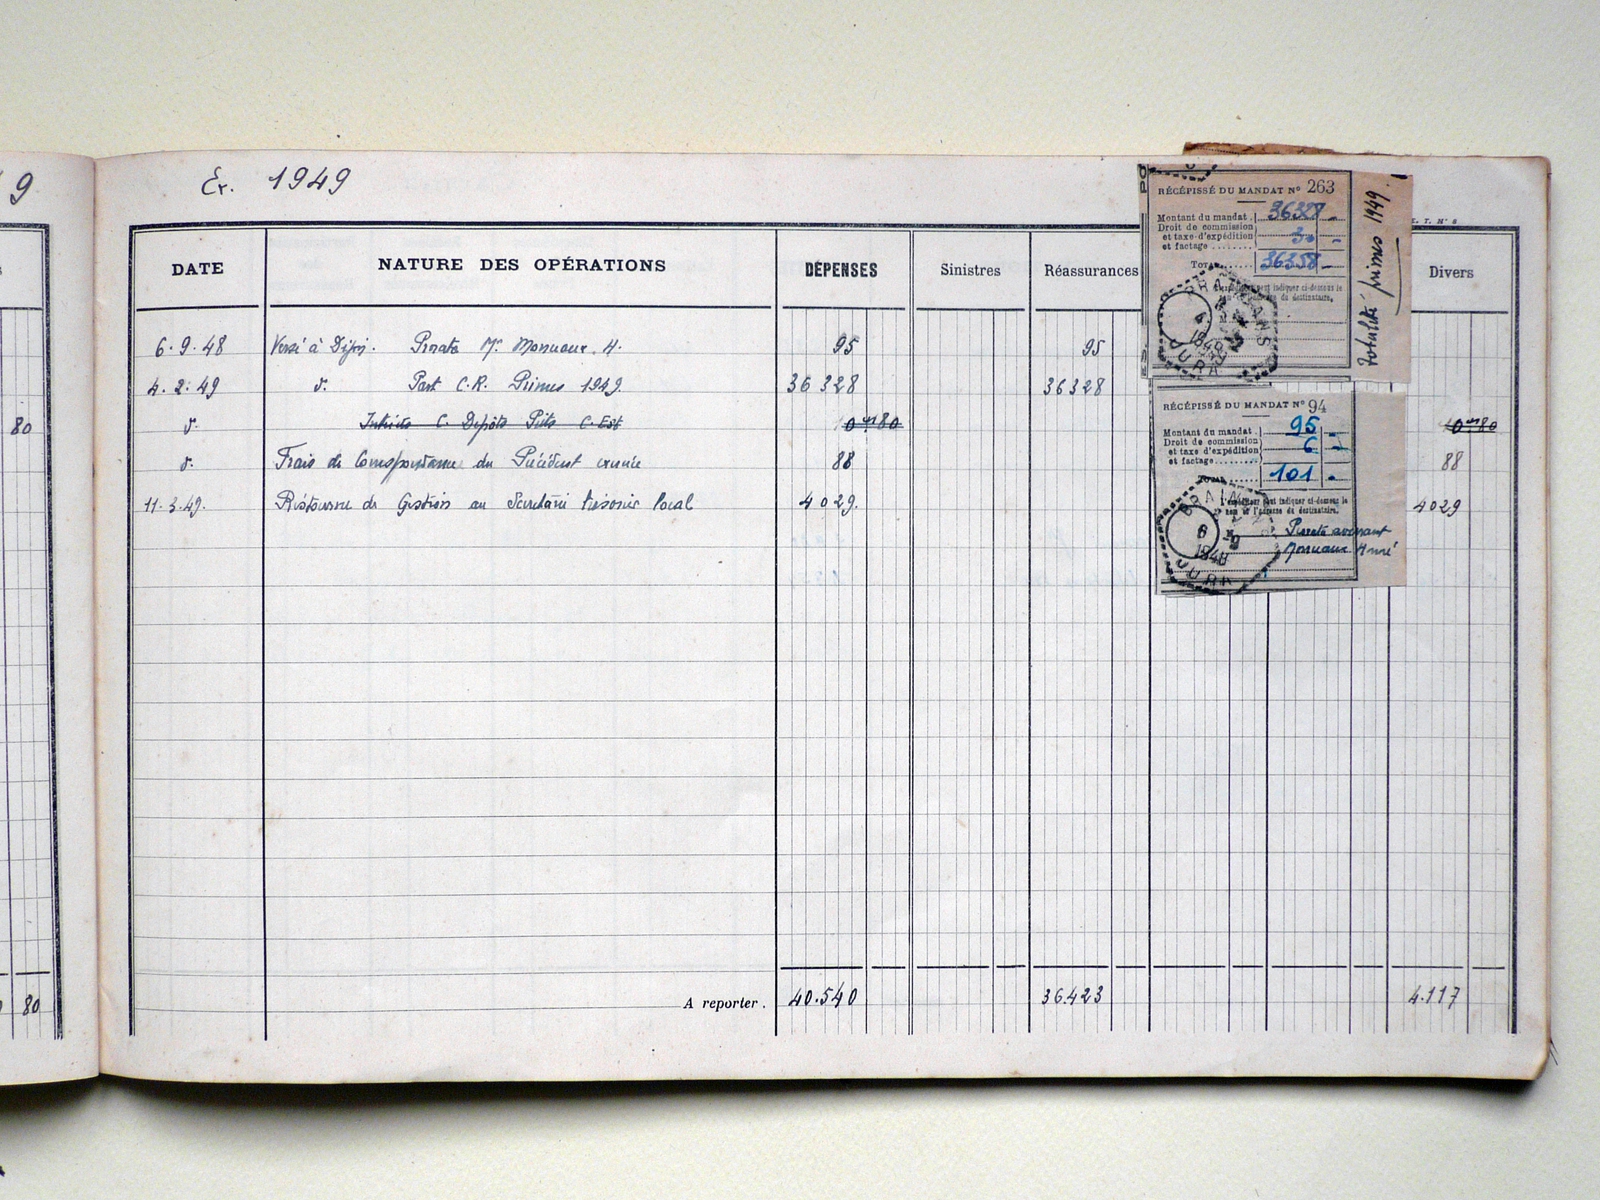 9
Er. 1949
DATE NATURE DES OPÉRATIONS DÉPENSES Sinistres Réassurances Divers
6.9.48 Versé à Dijon. Prorata Mr Monnaux. H. 95 95
4.2.49 d°. Part C.R. Primes 1949. 36328 36328
80
d°. C. Dépôts C. Est 80 80
d°. Frais de Correspondance du Président 88 88
11.3.49. Ristourne de Gestion au Secrétaire trésorier local 4029. 4029
80
A reporter. 40.540 36.423 4.117
RÉCÉPISSÉ DU MANDAT N° 263
Montant du mandat. 36328 -
Droit de commission
et taxe d'expédition
et factage ........ 30 -
TOTAL ...... 36358 -
L'expéditeur peut indiquer ci-dessous le
nom et l'adresse du destinataire.
BRAINANS
JURA
totalité primes 1949.
RÉCÉPISSÉ DU MANDAT N° 94
Montant du mandat. 95 -
Droit de commission
et taxe d'expédition
et factage ........ 6 -
TOTAL ...... 101 -
L'expéditeur peut indiquer ci-dessous le
nom et l'adresse du destinataire.
Prorata avenant
Monnaux Henri
BRAINANS
JURA